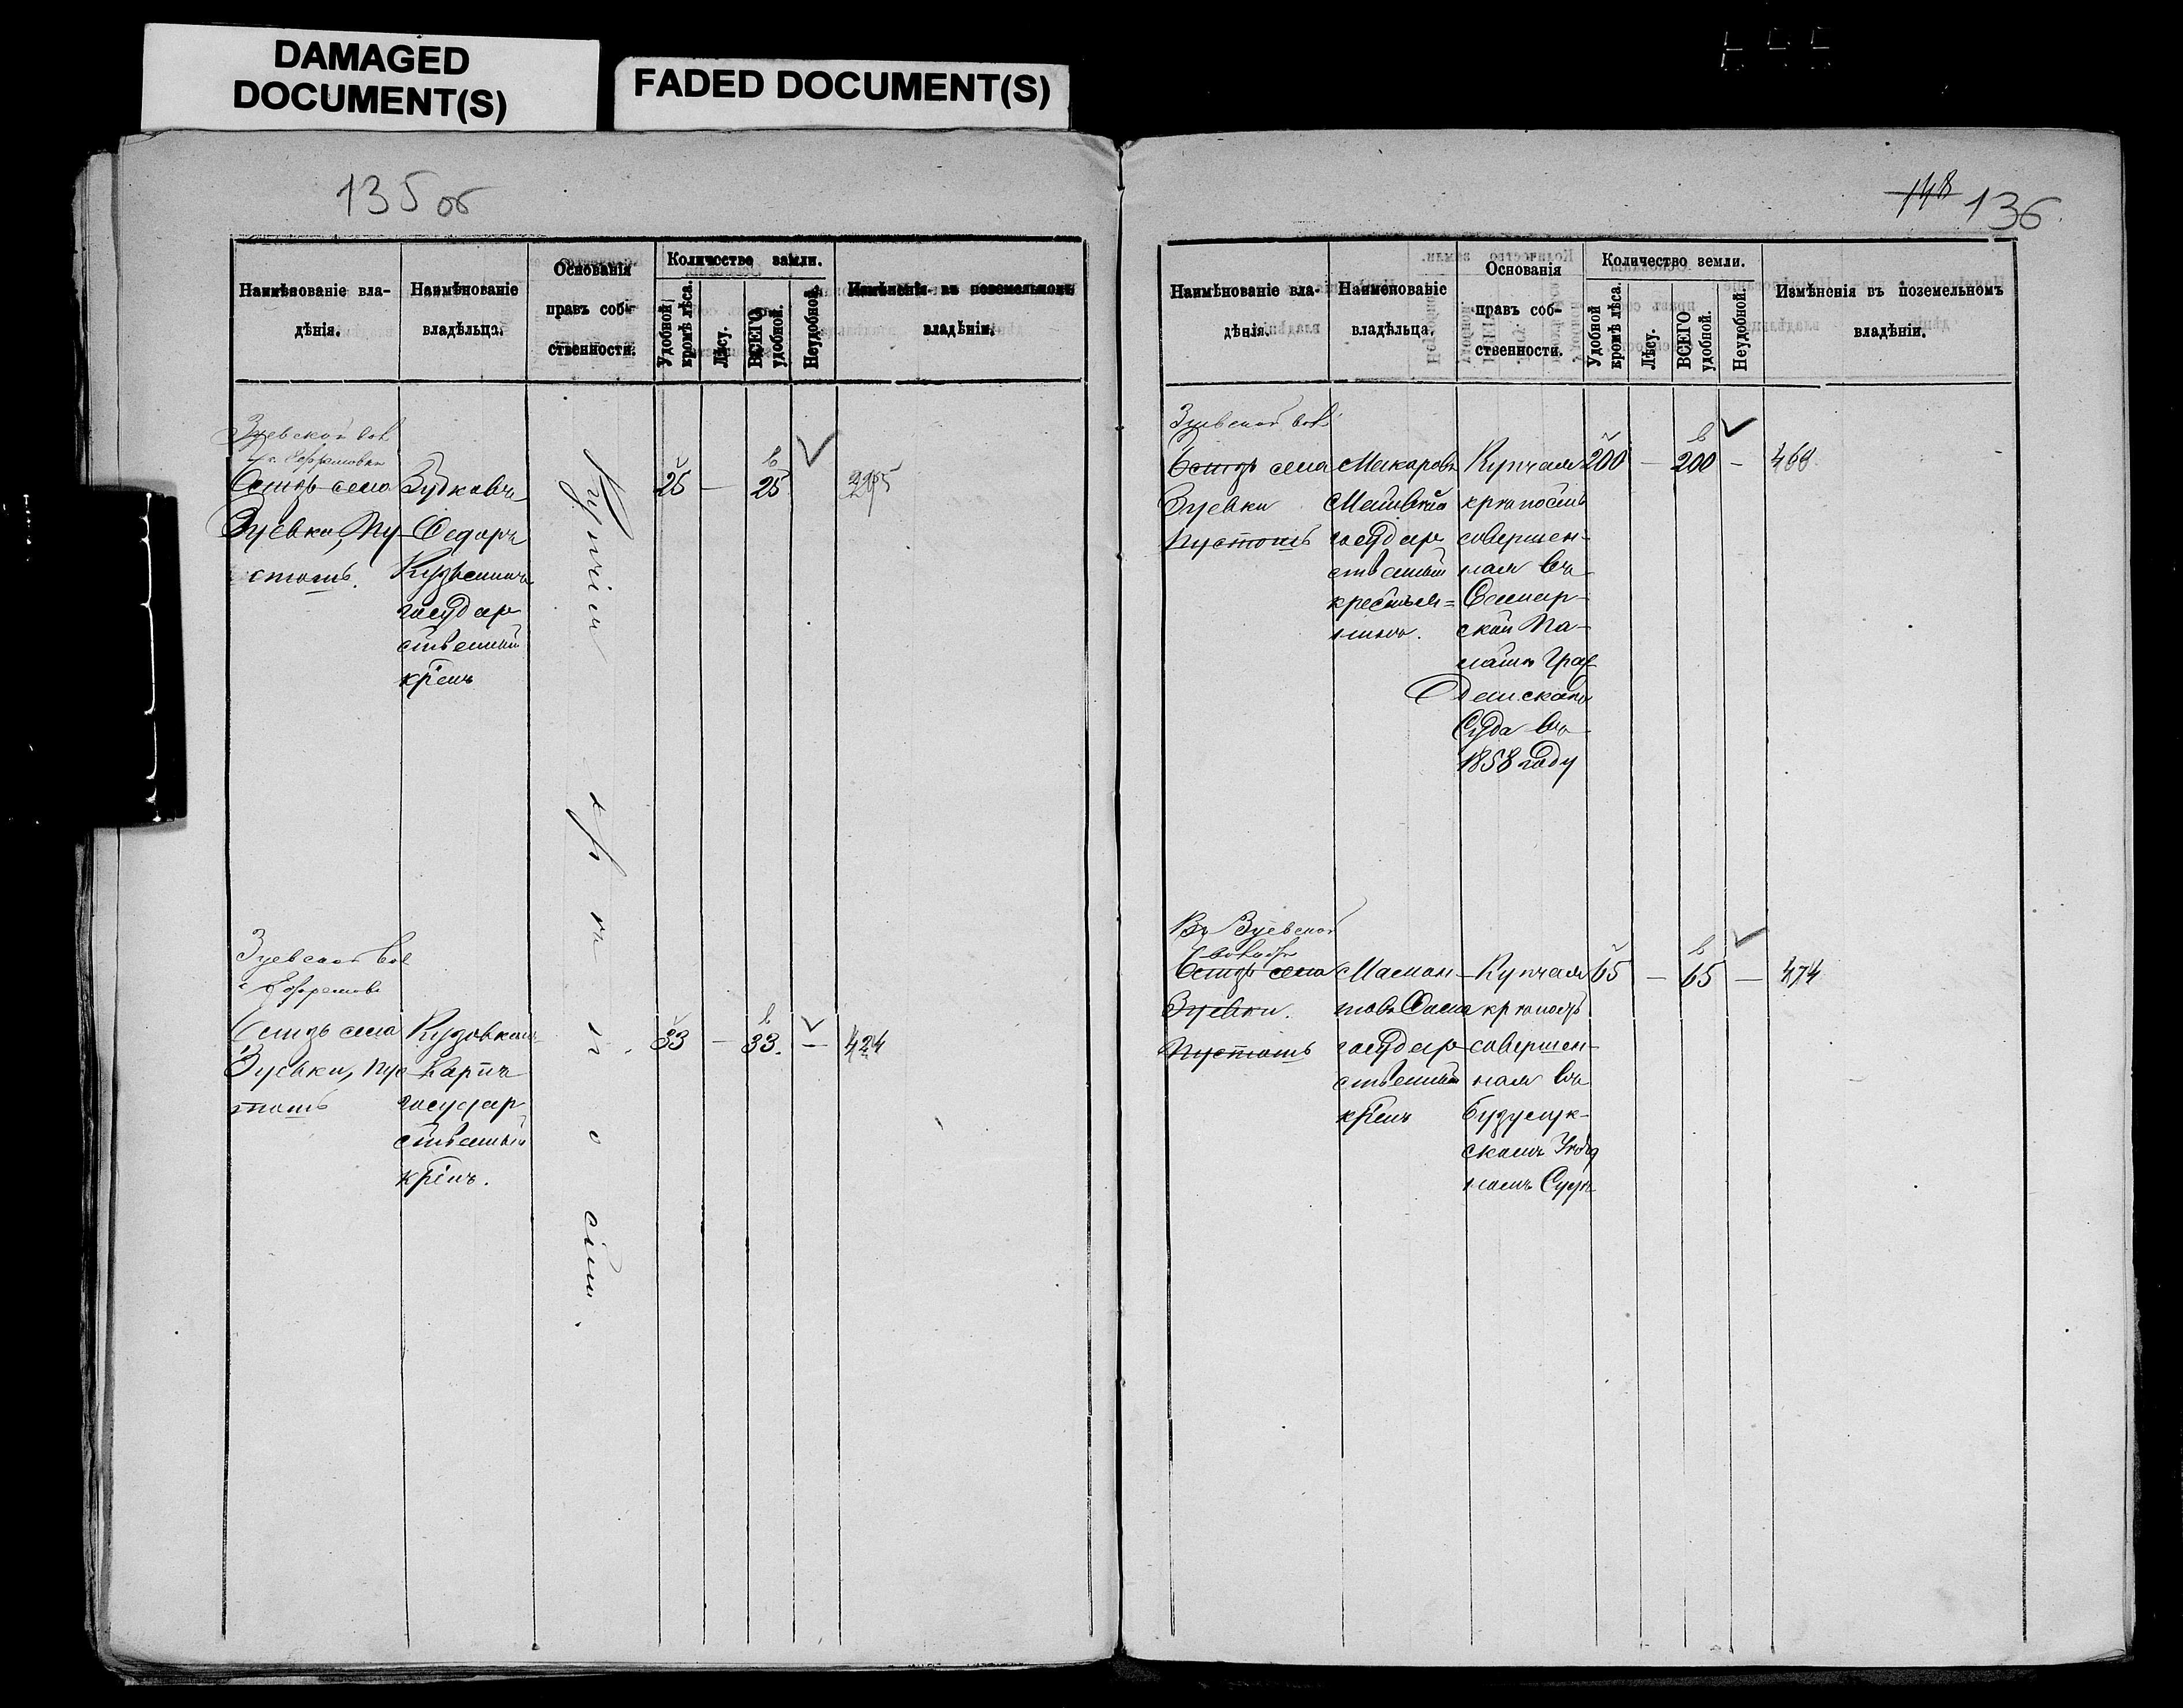 DAMAGED
DOCUMENT(S)
FADED DOCUMENT(S)
135 об
Наимѣнованіе вла-
дѣнія.
Наимѣнованіе
владѣльца.
Основанія
правъ соб-
ственности.
Количество земли.
Удобной
кромѣ лѣса.
Лѣсу.
ВСЕГО
удобной.
Неудобной.
Измѣненія въ поземельномъ
владѣніи.
Зуевской вол
Близь села
Зуевки, Пу-
стошь.
Зубковъ
Федоръ
Кузьминъ
государ
ственный
крѣнъ
Купчія крѣпости.
25 — 25
Зуевской вол
с Ефремов
Близь села
Зуевки, Пус
тошь
Кудовкинъ
Карпъ
государ
ственный
крѣнъ.
33 — 33. — 424
148 136
Наимѣнованіе вла-
дѣнія.
Наименованіе
владѣльца.
Основанія
правъ соб-
ственности.
Количество земли.
Удобной
кромѣ лѣса.
Лѣсу.
ВСЕГО
удобной.
Неудобной.
Измѣненія въ поземельномъ
владѣніи.
Зуевской вол
Близь села
Зуевки
Пустошь
Макаровъ
Матвѣй
государ
ственный
крестьян=
нинъ.
Купчая
крѣпость
совершен-
ная въ
Самар-
ской Па-
латѣ Граж
данскаго
Суда въ
1858 году
200 — 200 — 460
Въ Зуевской
волости
Близь села
Зуевки.
Пустошь
Маман-
товъ
государ
ственный
крѣнъ
Купчая
крѣпость
совершен-
ная въ
Бузулук-
скомъ Уѣзд
номъ Судѣ
65 — 65 — 474